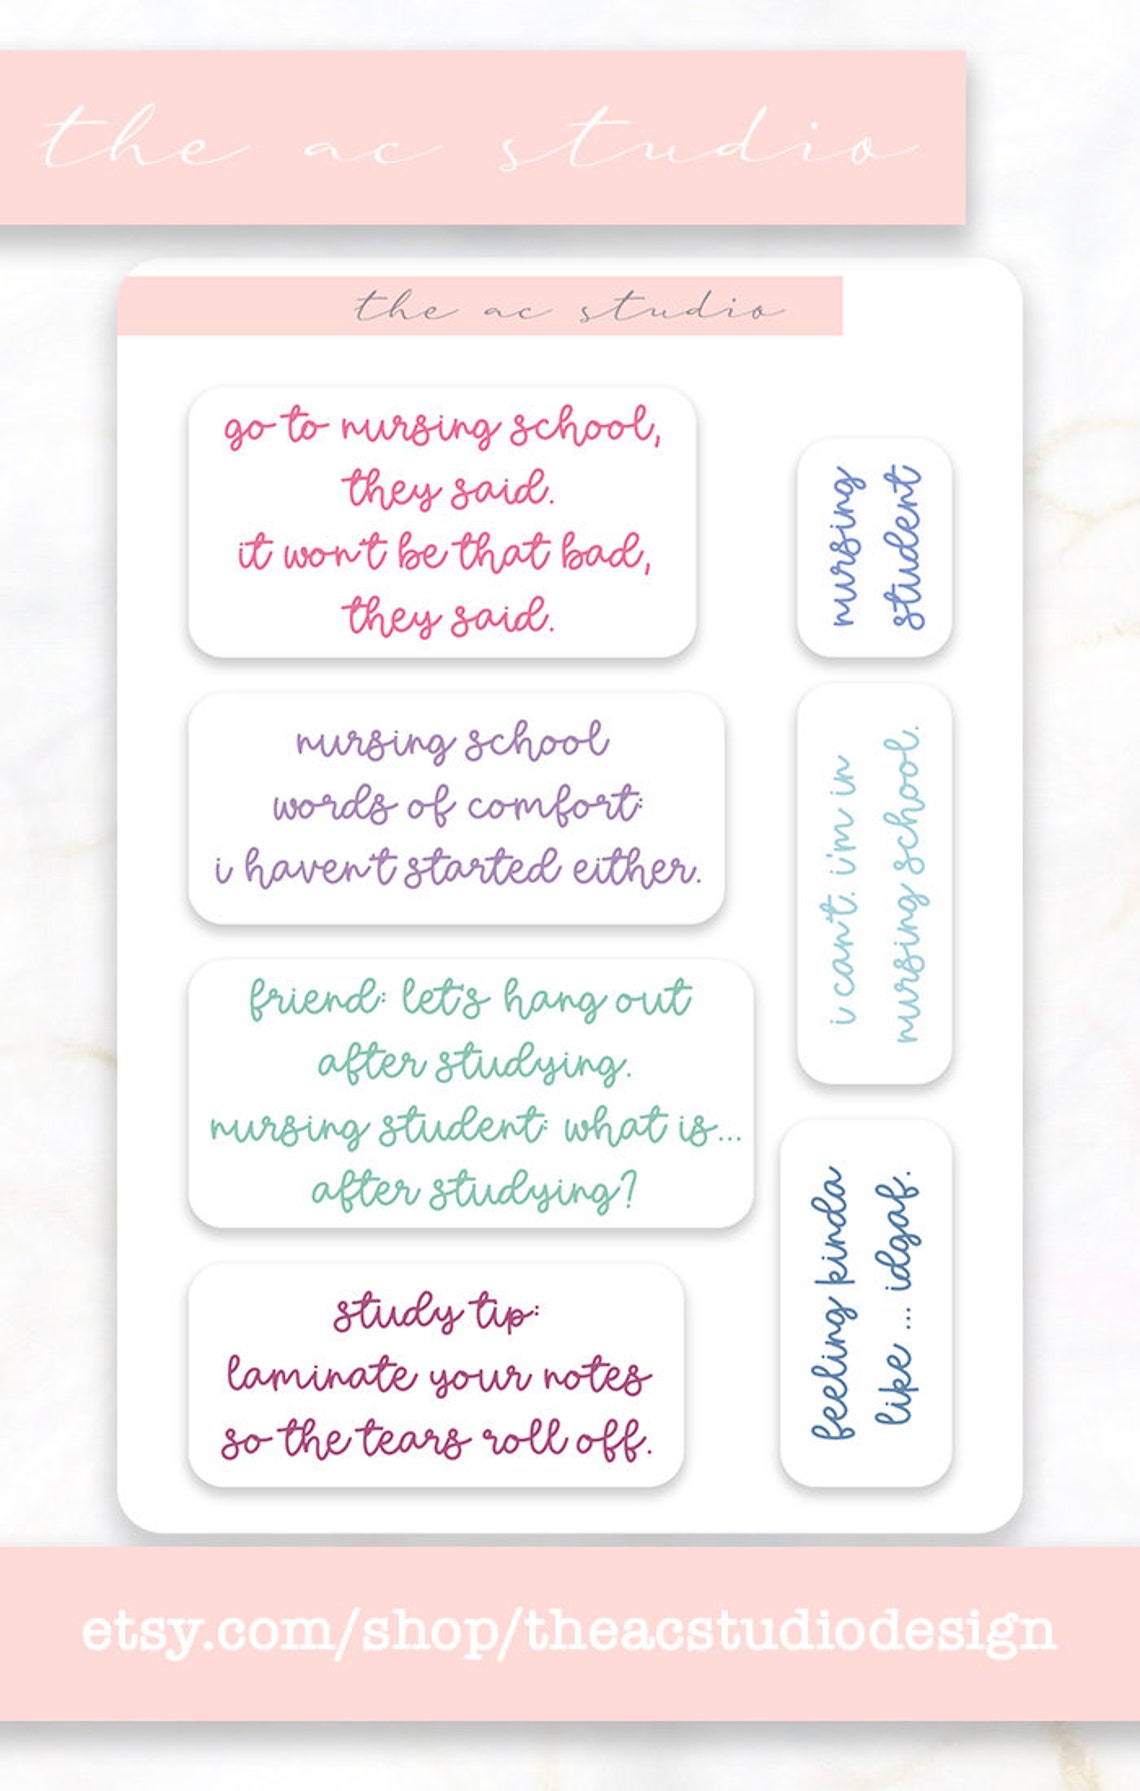 the ac studio
the ac studio
go to nursing school,
they said.
it won't be that bad,
they said.
nursing school
words of comfort:
i haven't started either.
friend: let's hang out
after studying.
nursing student: what is...
after studying?
study tip:
laminate your notes
so the tears roll off.
nursing
student
i can't. i'm in
nursing school.
feeling kinda
like ... idgaf.
etsy.com/shop/theacstudiodesign